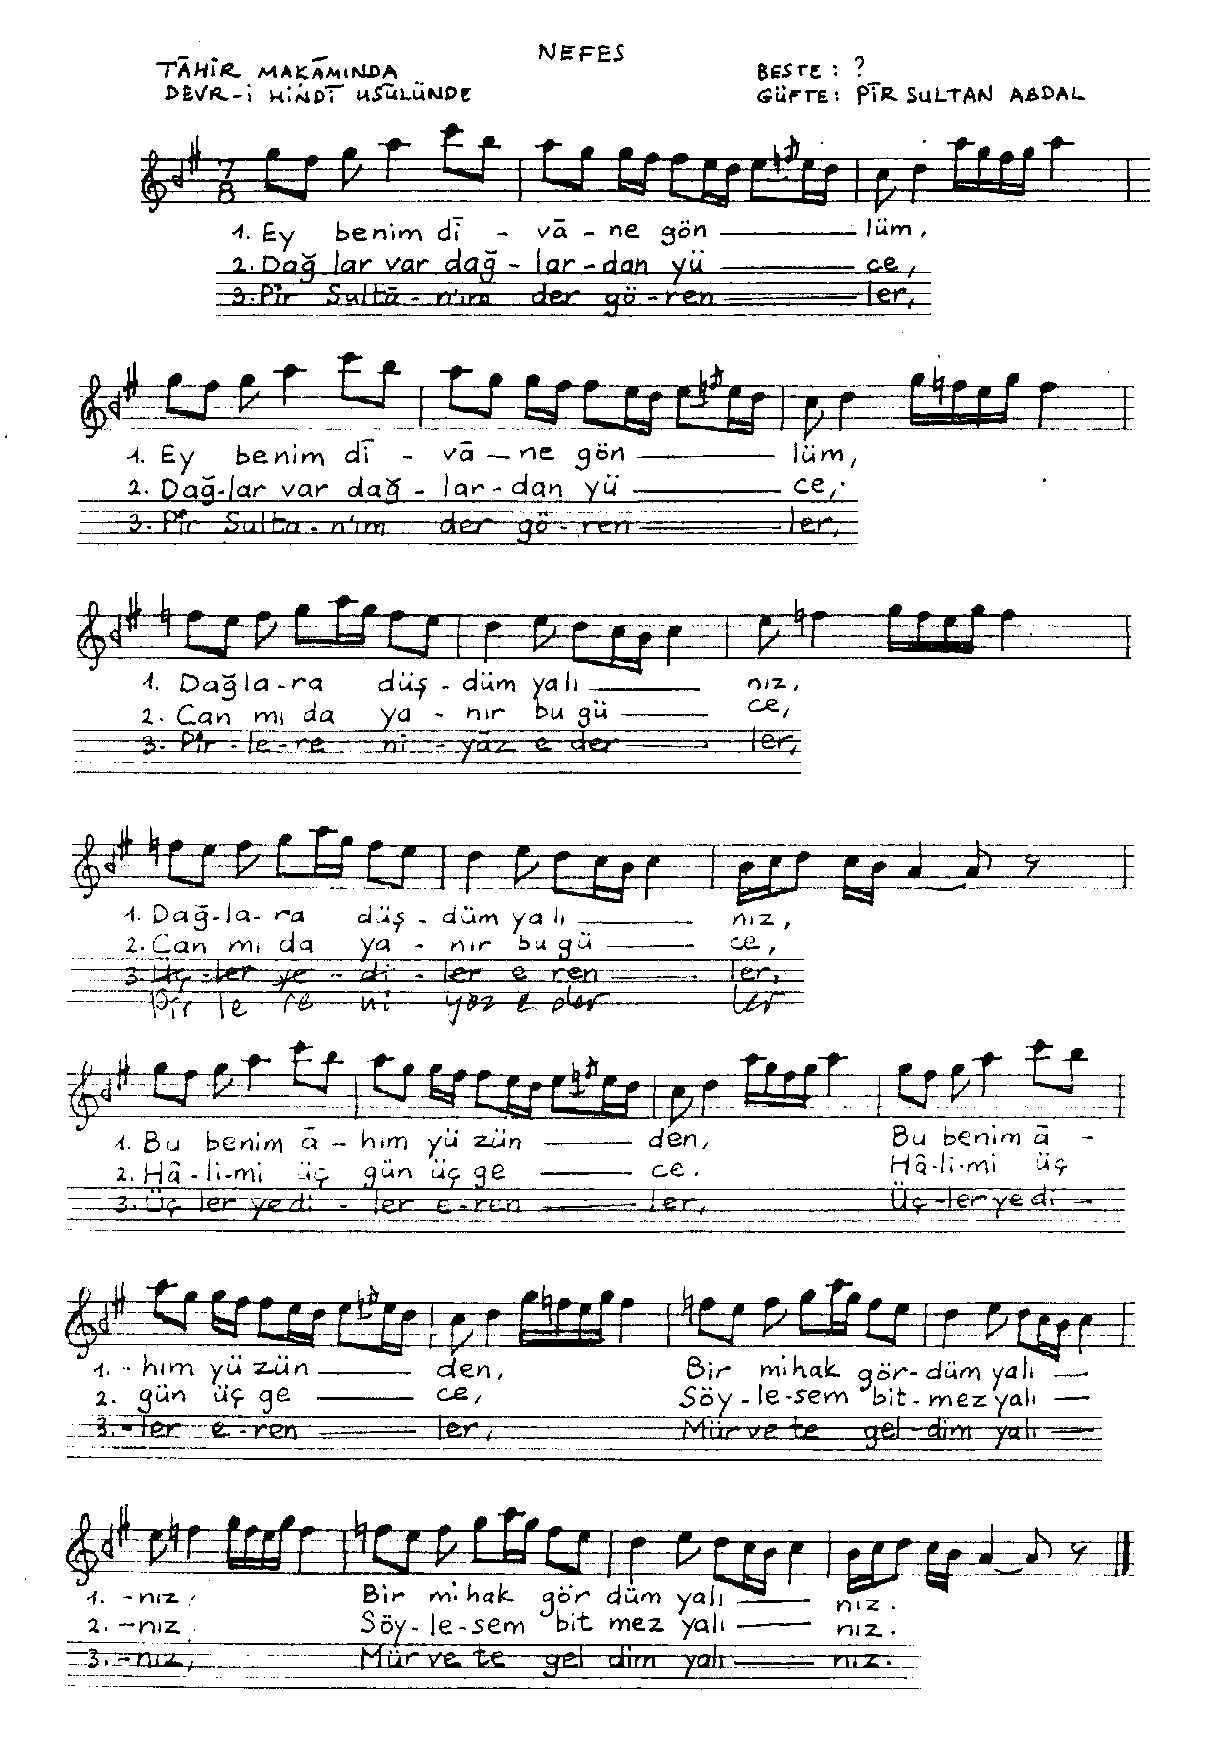 NEFES
TÂHİR MAKĀMINDA
BESTE : ?
DEVR-İ HİNDĪ USŪLÜNDE
GÜFTE : PĪR SULTAN ABDAL
7
8
1. Ey benim dī - vā - ne gön ——— lüm,
2. Dağ lar var dağ - lar - dan yü ——— ce,
3. Pīr Sultā - n'ım der gö - ren ——— ler,
1. Ey benim dī - vā — ne gön ——— lüm,
2. Dağ-lar var dağ - lar - dan yü ——— ce,
3. Pîr Sulta - n'ım der gö - ren ——— ler,
1. Dağla - ra düş - düm yalı ——— nız,
2. Can mı da ya - nır bu gü ——— ce,
3. Pîr - le - re ni - yāz e der ——— ler,
1. Dağ-la- ra düş - düm yalı ——— nız,
2. Can mı da ya - nır bu gü ——— ce,
3. Üç - ler ye - di - ler e ren ——— ler,
Pir le re ni yaz e der ler
1. Bu benim ā - hım yü zün ——— den, Bu benim ā -
2. Hâ - li-mi üç gün üç ge ——— ce. Hâ-li-mi üç
3. Üç ler ye di - ler e - ren ——— ler, Üç - ler ye di -
1. - hım yü zün ——— den, Bir mihak gör- düm yalı —
2. gün üç ge ——— ce, Söy - le - sem bit - mez yalı —
3. - ler e - ren ——— ler, Mür ve te gel - dim yalı —
1. - nız, Bir mihak gör düm yalı —— nız.
2. — nız Söy - le - sem bit mez yalı —— nız.
3. - nız, Mür ve te gel dim yalı —— nız.